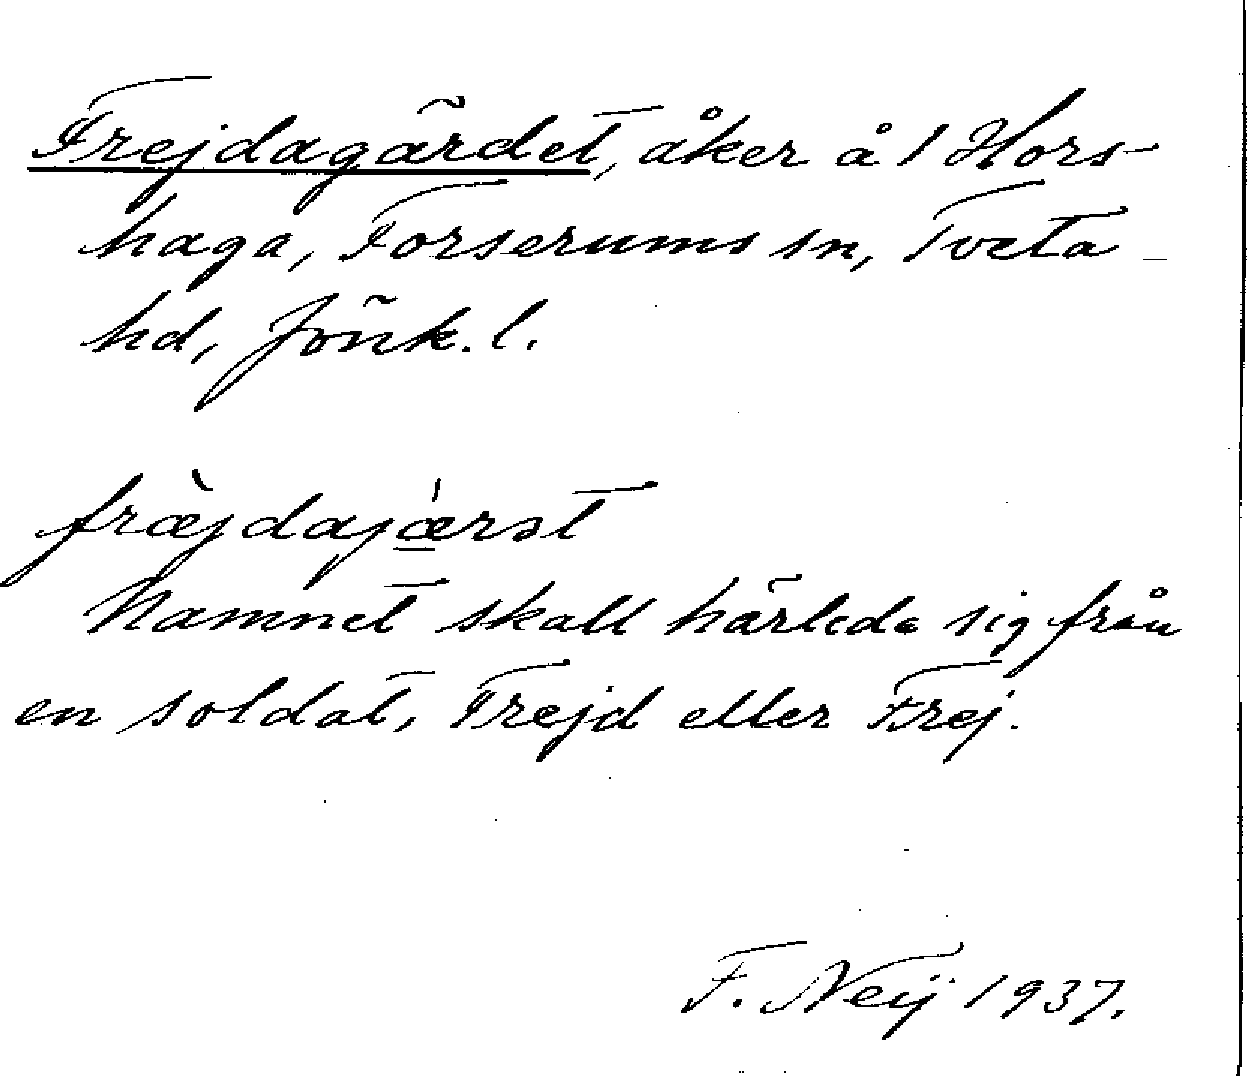 Frejdagärdet, åker å 1 Hors-
haga, Forserums sn, Tveta
hd, Jönk. l.
fræ̀jdajǽrət
Namnet skall härleda sig från
en soldat, Frejd eller Frej.
F. Neij 1937.